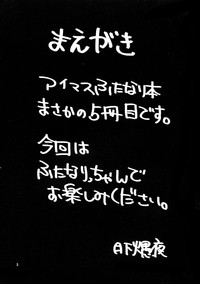 まえがき
アイマスふたなり本
まさかの5冊目です。
今回は
ふたなりっちゃんで
お楽しみください。